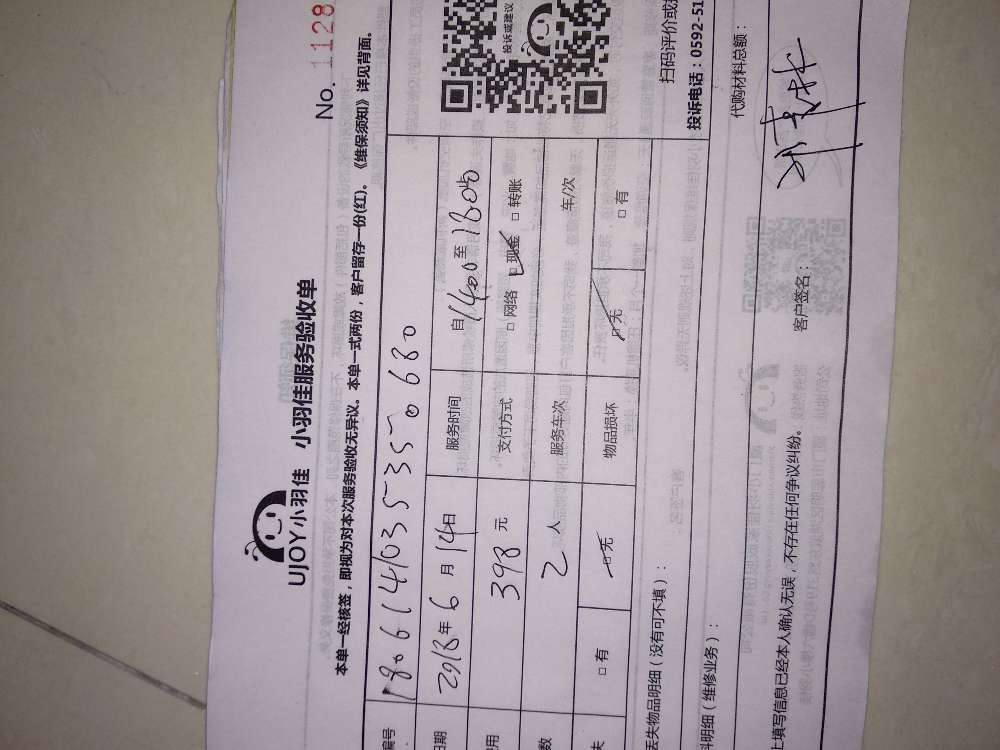 No. 1128
UJOY小羽佳 小羽佳服务验收单
本单一经核签，即视为对本次服务验收无异议。本单一式两份，客户留存一份(红)。《维保须知》详见背面。
编号 180614103535350680
日期 2018年6月14日 服务时间 自1400至1800
用 398元 支付方式 □网络 □现金 □转账
数 2人 服务车次 车/次
失 □有 □无 物品损坏 □无 □有
投诉或建议
扫码评价或
投诉电话：0592-51
丢失物品明细（没有可不填）：
料明细（维修业务）：
代购材料总额：
上填写信息已经本人确认无误，不存在任何争议纠纷。 客户签名：